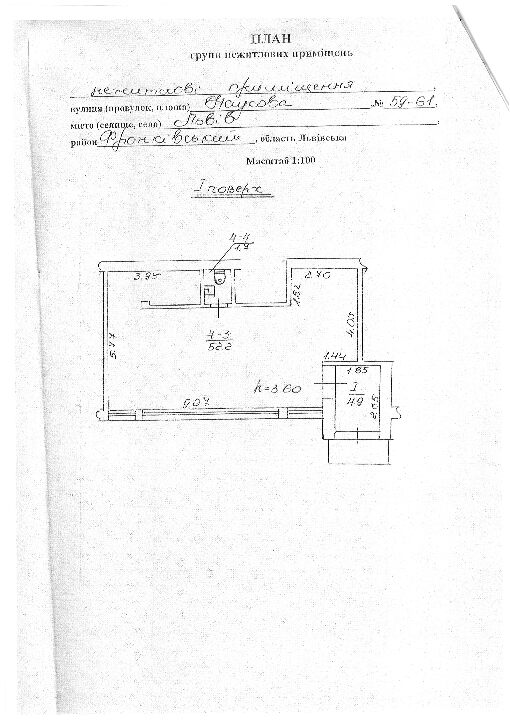 ПЛАН
групи нежитлових приміщень
нежитлові приміщення
вулиця (провулок, площа) Наукова № 59-61,
місто (селище, село) Львів,
район Франківський, область Львівська
Масштаб 1:100
I поверх
4-4
1.9
3.95
2.70
1.52
4.03
5.77
4-3
52.2
1.44
1.65
h=3.60
I
4.9
9.04